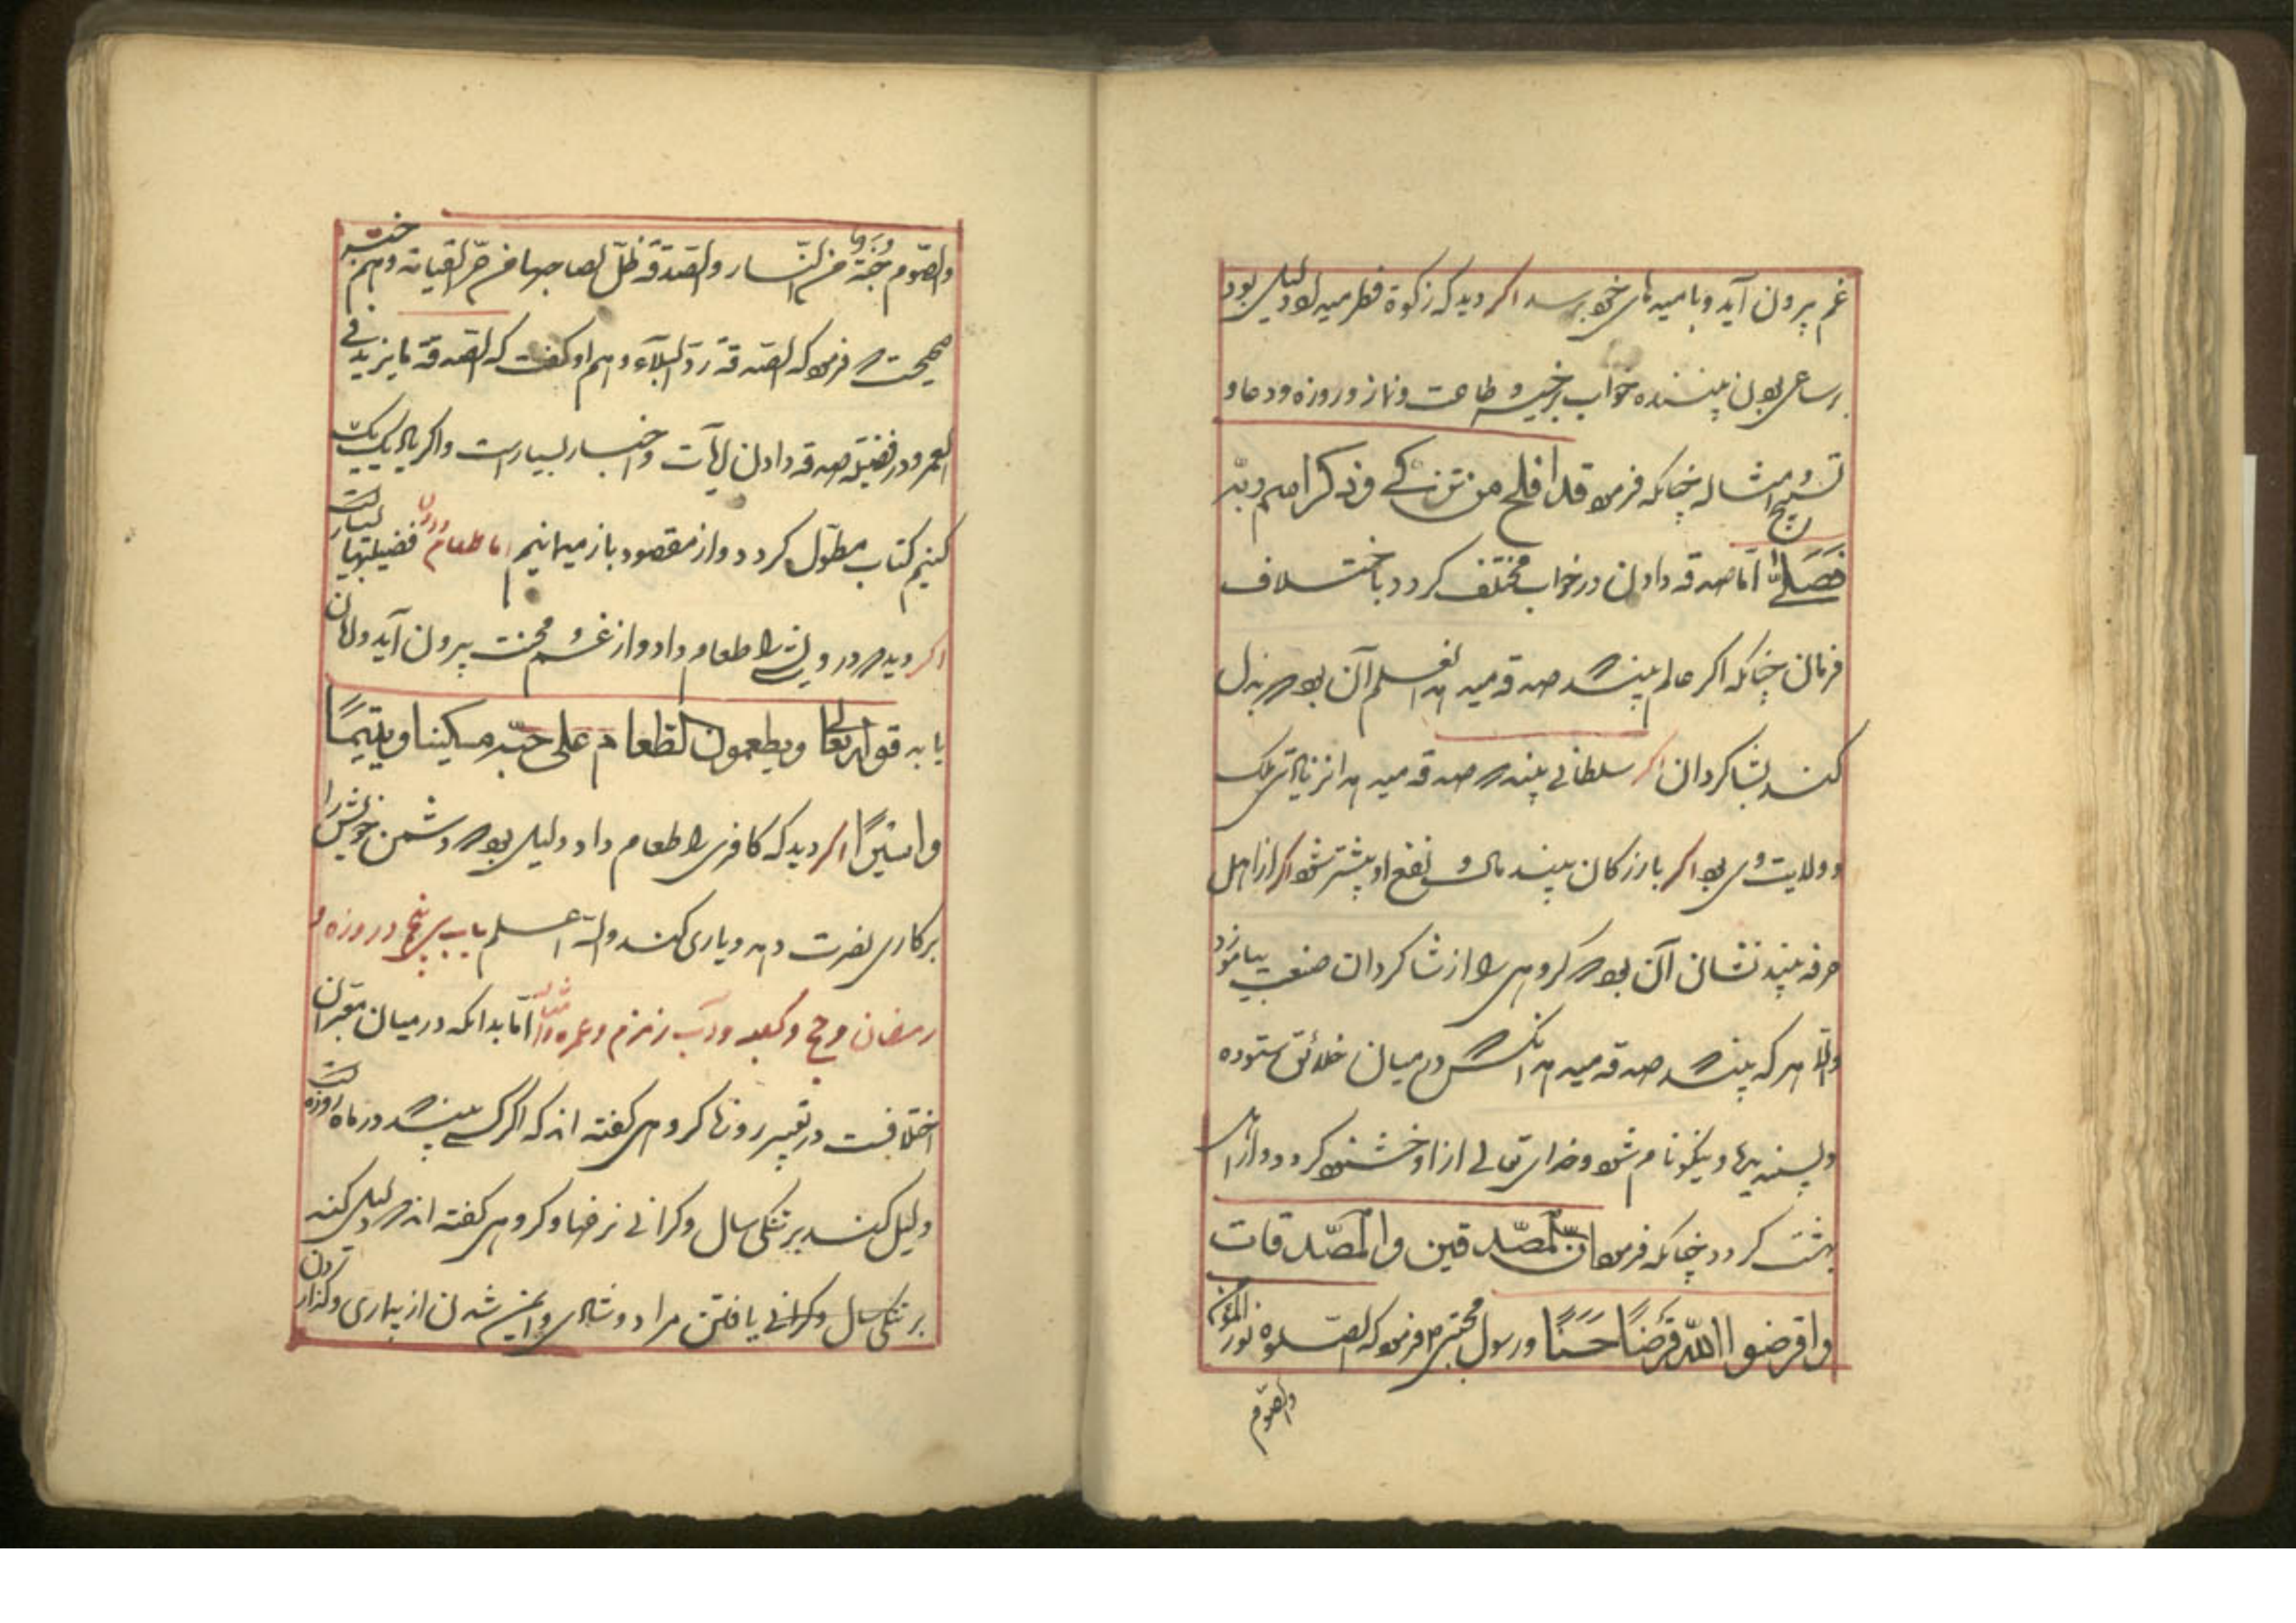 غم بیرون آید و بامیدهای خود برسد اگر دید که زکوة فطر میداد دلیل بود
بر ساعی بودن بیننده خواب بر خیر و طاعت و نماز و روزه و دعا و
تسبیح و امثاله چنانکه فرمود قد افلح من تزکی وذکر اسم ربه
فصلی اما صدقه دادن در خواب مختلف کردد باختلاف
فرمان چنانکه اگر عالم بیند که صدقه میدهد علم آن بود که بذل
کند بشاکردان اگر سلطانی بیند که صدقه میدهد اثر زیادتی ملک
و ولایت وی بود اگر بازرکان بیند مال و نفع او بیشتر شود اگر از اهل
حرفه بیند نشان آن بود که کروهی را از شاکردان صنعت بیاموزد
والا هر که بیند که صدقه میدهد آنکس در میان خلائق ستوده
و پسندیده و نیکونام شود و خدای تعالی از او خشنود کردد و از اهل
بهشت کردد چنانکه فرمود ان المصدقین والمصدقات
واقرضوا الله قرضا حسنا ورسول مجتبی فرمود که الصلوة نور المؤمن
والصوم
والصوم جنة من النار والصدقة ظل لصاحبها من حر القیامة وهم خبر
صحیحست که فرمود که الصدقة رد البلاء وهم او کفت که الصدقة ما یزید فی
العمر ودر فضیلة صدقه دادن آیات و اخبار بسیارست واکر یاد یک یک
کنیم کتاب مطول کردد و از مقصود باز میمانیم اما طعام دادن فضیلتها بسیارست
اکر دید که درویشی را طعام داد از غم و محنت بیرون آید و امان
یابد قوله تعالی ویطعمون الطعام علی حبه مسکینا ویتیما
واسیرا اکر دید که کافری را طعام داد دلیل بود که دشمن خویش را
بر کاری نصرت دهد و یاری کند والله اعلم باب پنج در روزه
رمضان وحج وکعبه وآب زمزم وعمره وامثاله اما بدانکه در میان معبران
اختلافست در تعبیر روزها کروهی کفته اند که اکر کسی بیند که در ماه روزه است
دلیل کند بر تنکی سال وکرانی نرخها وکروهی کفته اند که دلیل کند
بر تنکی سال وکرانی یافتن مراد وشادی وایمن شدن از بیماری وکزاردن